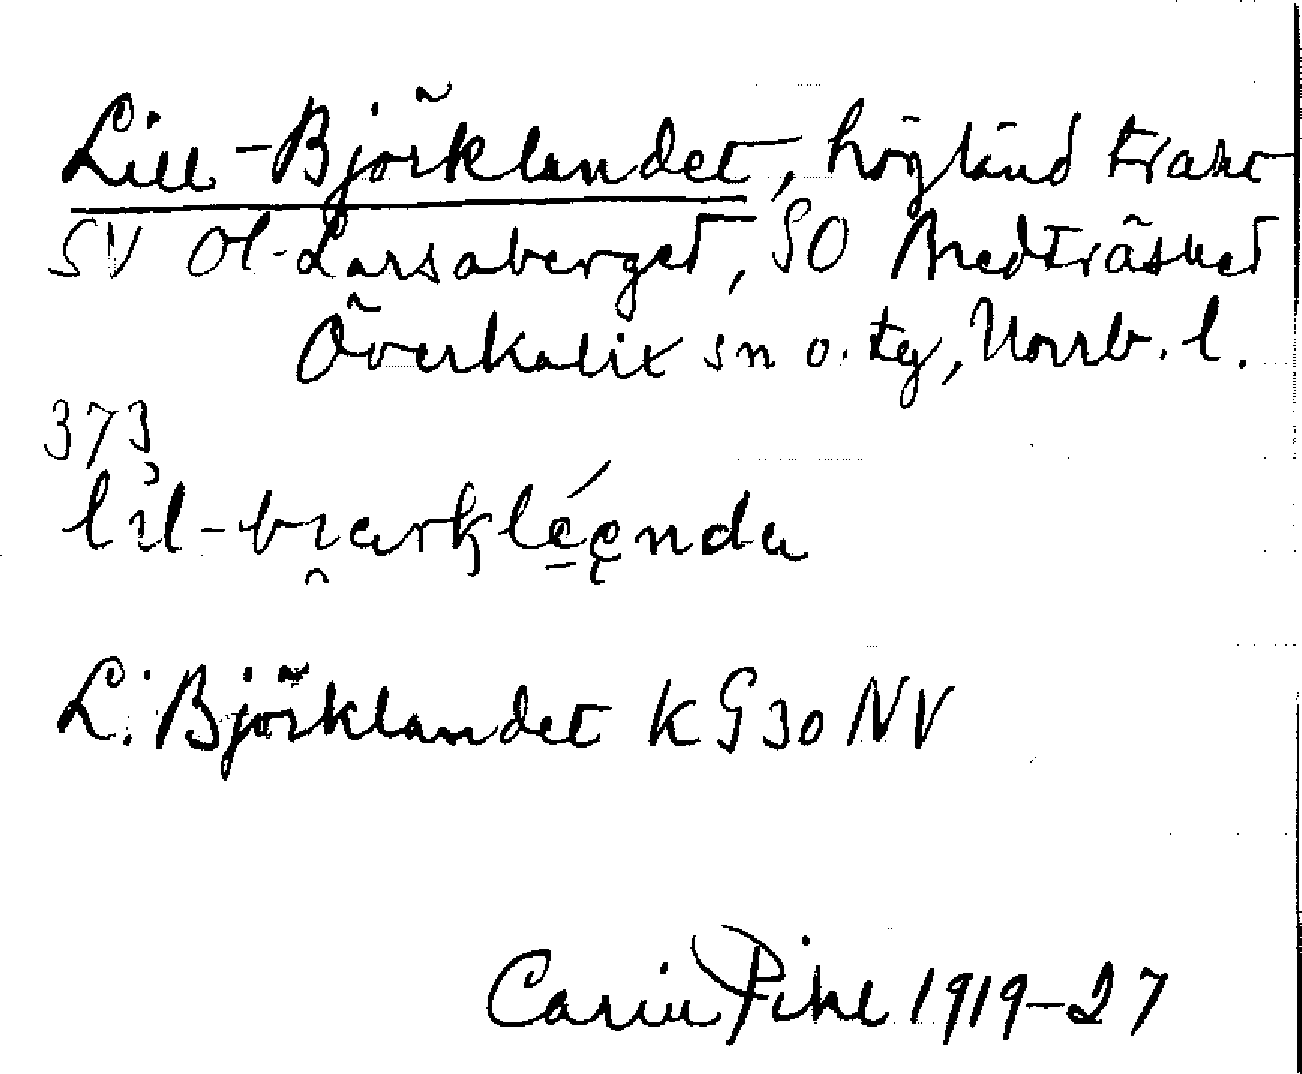 Lill-Björklandet, högländ trakt
SV Ol-Larsaberget, SO Bredträsket
Överkalix sn o. tg, Norrb. l.
373
lil-bi̯ærkléenda
L. Björklandet K G 30 NV
Carin Pihl 1919-27